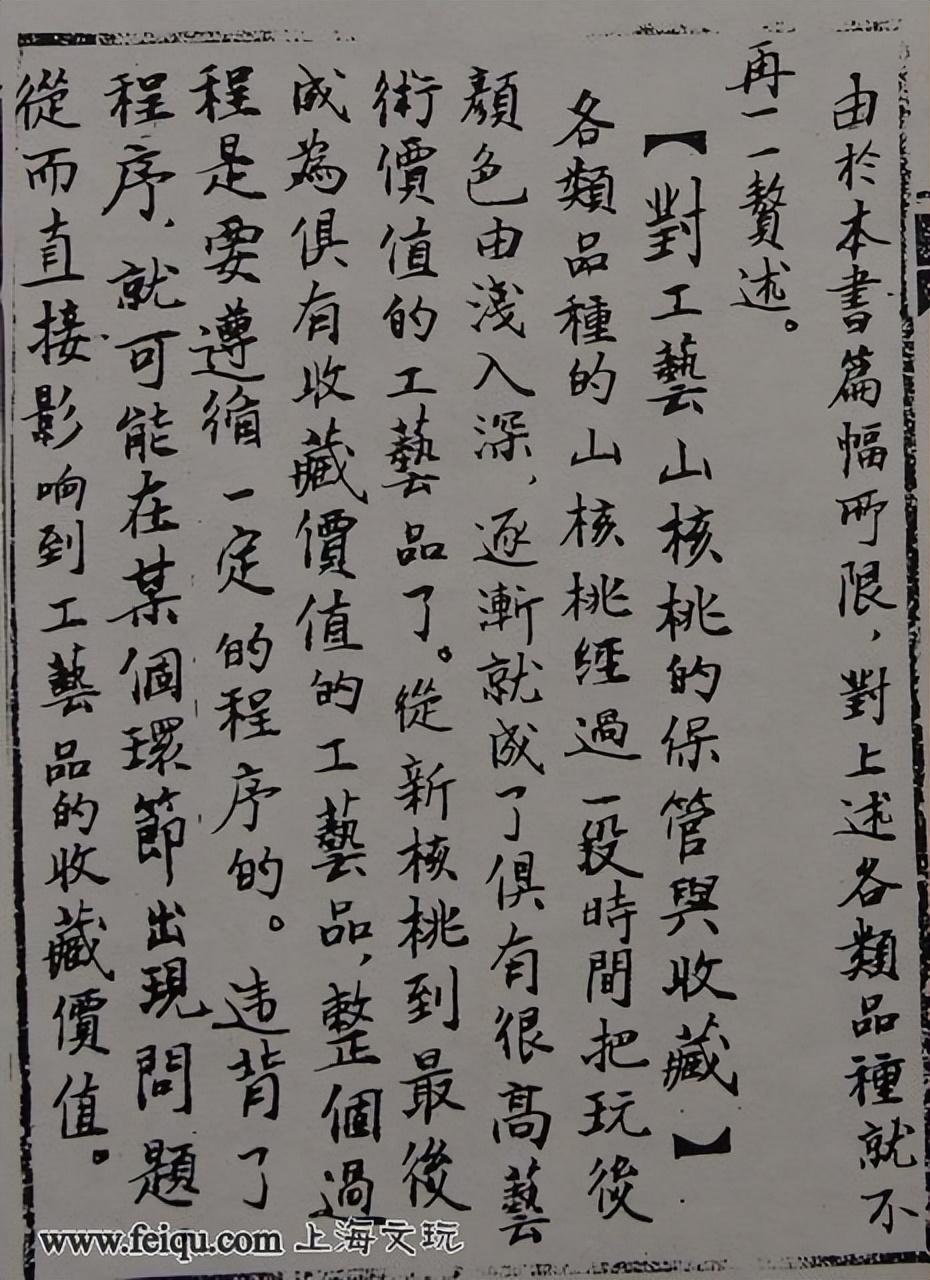 由於本書篇幅所限，對上述各類品種就不
再一一贅述。
【對工藝山核桃的保管與收藏】
各類品種的山核桃經過一段時間把玩後
顏色由淺入深，逐漸就成了俱有很高藝
術價值的工藝品了。從新核桃到最後
成為俱有收藏價值的工藝品，整個過
程是要遵循一定的程序的。违背了
程序，就可能在某個環節出現問題
從而直接影响到工藝品的收藏價值。
www.feiqu.com 上海文玩